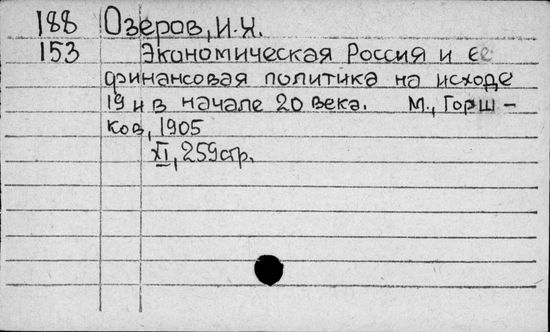 188 Озеров, И.Х.
153 Экономическая Россия и ее
финансовая политика на исходе
19 и в начале 20 века. М., Горш-
ков, 1905
XI, 259 стр.